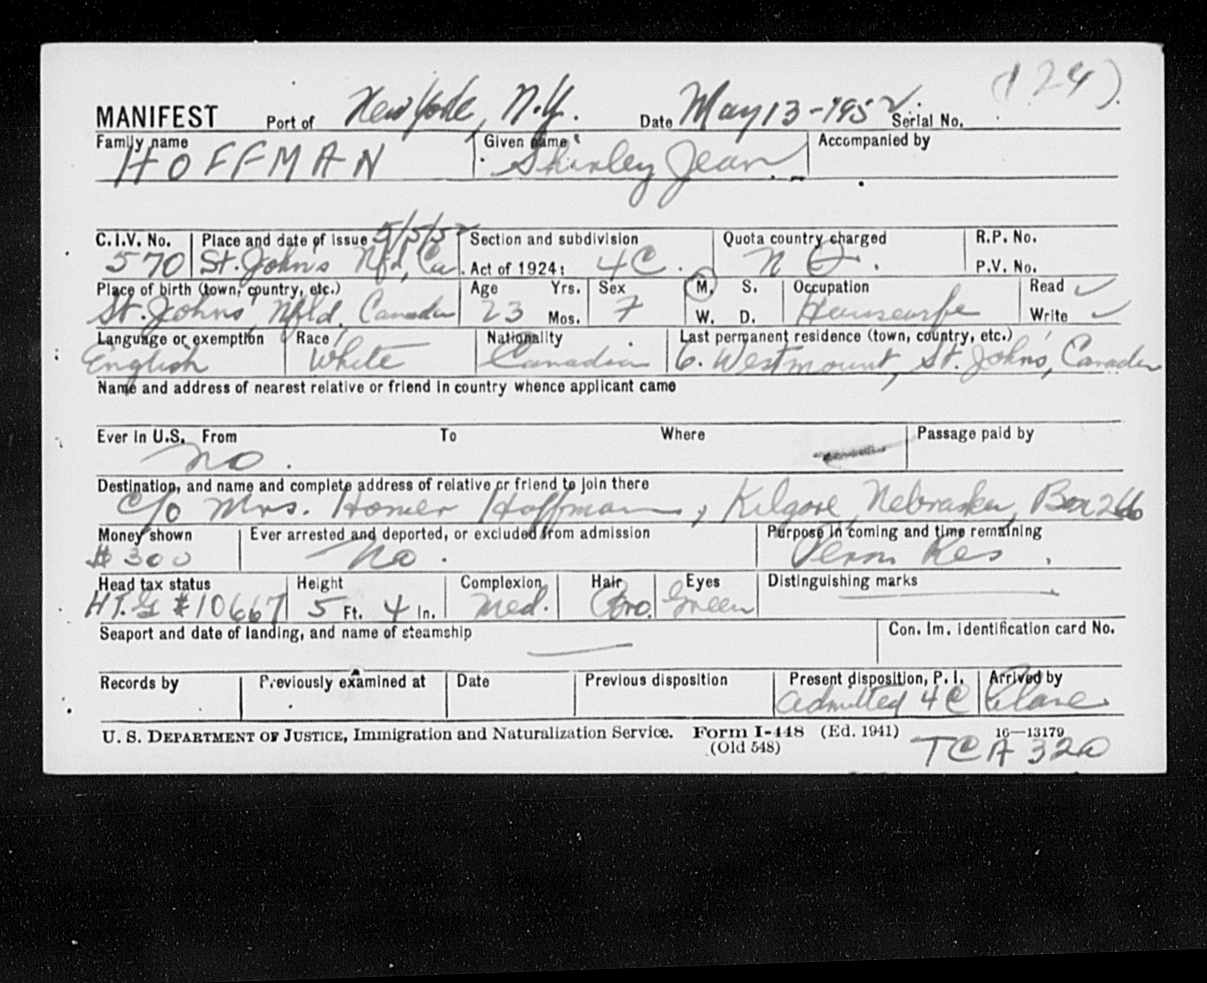 (124)
MANIFEST Port of New York, N.Y. Date May 13-1952 Serial No.
Family name Given name Accompanied by
HOFFMAN Shirley Jean
C.I.V. No. Place and date of issue 5/5/52 Section and subdivision Quota country charged R.P. No.
570 St. John's Nfd, Ca Act of 1924: 4C. N Q. P.V. No.
Place of birth (town, country, etc.) Age Yrs. Sex M. S. Occupation Read ✓
St. Johns, Nfld, Canada 23 Mos. F W. D. Housewife Write ✓
Language or exemption Race Nationality Last permanent residence (town, country, etc.)
English White Canadian 6. Westmount, St. Johns, Canada
Name and address of nearest relative or friend in country whence applicant came
Ever in U.S. From To Where Passage paid by
No.
Destination, and name and complete address of relative or friend to join there
c/o Mrs. Homer Hoffman, Kilgore, Nebraska, Box 266
Money shown Ever arrested and deported, or excluded from admission Purpose in coming and time remaining
$300 No. Perm Res.
Head tax status Height Complexion Hair Eyes Distinguishing marks
HT. G #10667 5 Ft. 4 In. Med. Bro. Green
Seaport and date of landing, and name of steamship Con. Im. Identification card No.
Records by Previously examined at Date Previous disposition Present disposition, P. I. Arrived by
admitted 4C Plane
U. S. DEPARTMENT OF JUSTICE, Immigration and Naturalization Service. Form I-448 (Ed. 1941) 16—13179
(Old 548) TCA 320